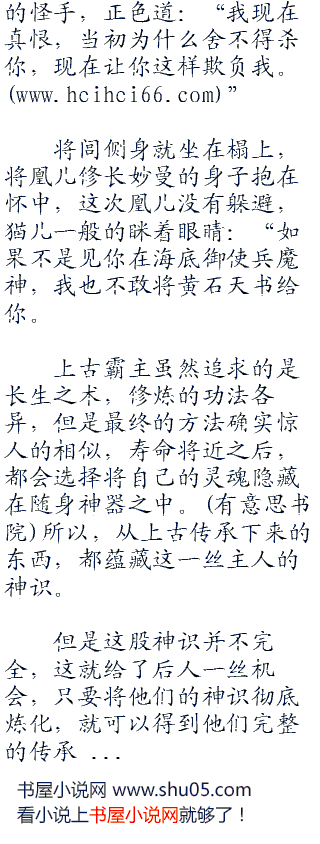 的怪手，正色道：“我现在
真恨，当初为什么舍不得杀
你，现在让你这样欺负我。
(www.hcihci66.com)”
将闾侧身就坐在榻上，
将凰儿修长妙曼的身子抱在
怀中，这次凰儿没有躲避，
猫儿一般的眯着眼睛：“如
果不是见你在海底御使兵魔
神，我也不敢将黄石天书给
你。
上古霸主虽然追求的是
长生之术，修炼的功法各
异，但是最终的方法确实惊
人的相似，寿命将近之后，
都会选择将自己的灵魂隐藏
在随身神器之中。(有意思书
院)所以，从上古传承下来的
东西，都蕴藏这一丝主人的
神识。
但是这股神识并不完
全，这就给了后人一丝机
会，只要将他们的神识彻底
炼化，就可以得到他们完整
的传承 ...
书屋小说网 www.shu05.com
看小说上书屋小说网就够了！